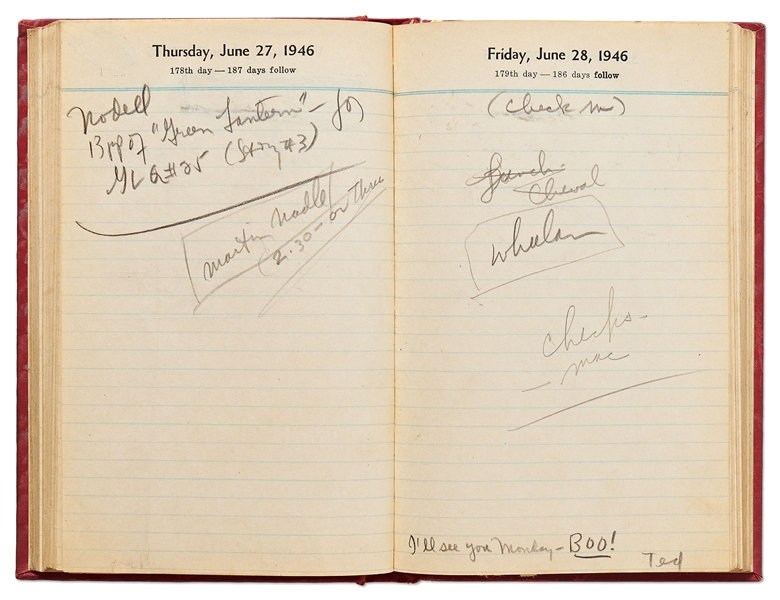 Thursday, June 27, 1946
178th day — 187 days follow
Nodell
13 pp of "Green Lantern" — for
GL Q #25 (Story #3)
Martin Nadle
(2:30 - or Three
Friday, June 28, 1946
179th day — 186 days follow
(Check in)
Lunch
Cheval
Whelan
Checks -
- Mac
I'll see you Monday - BOO!
Ted